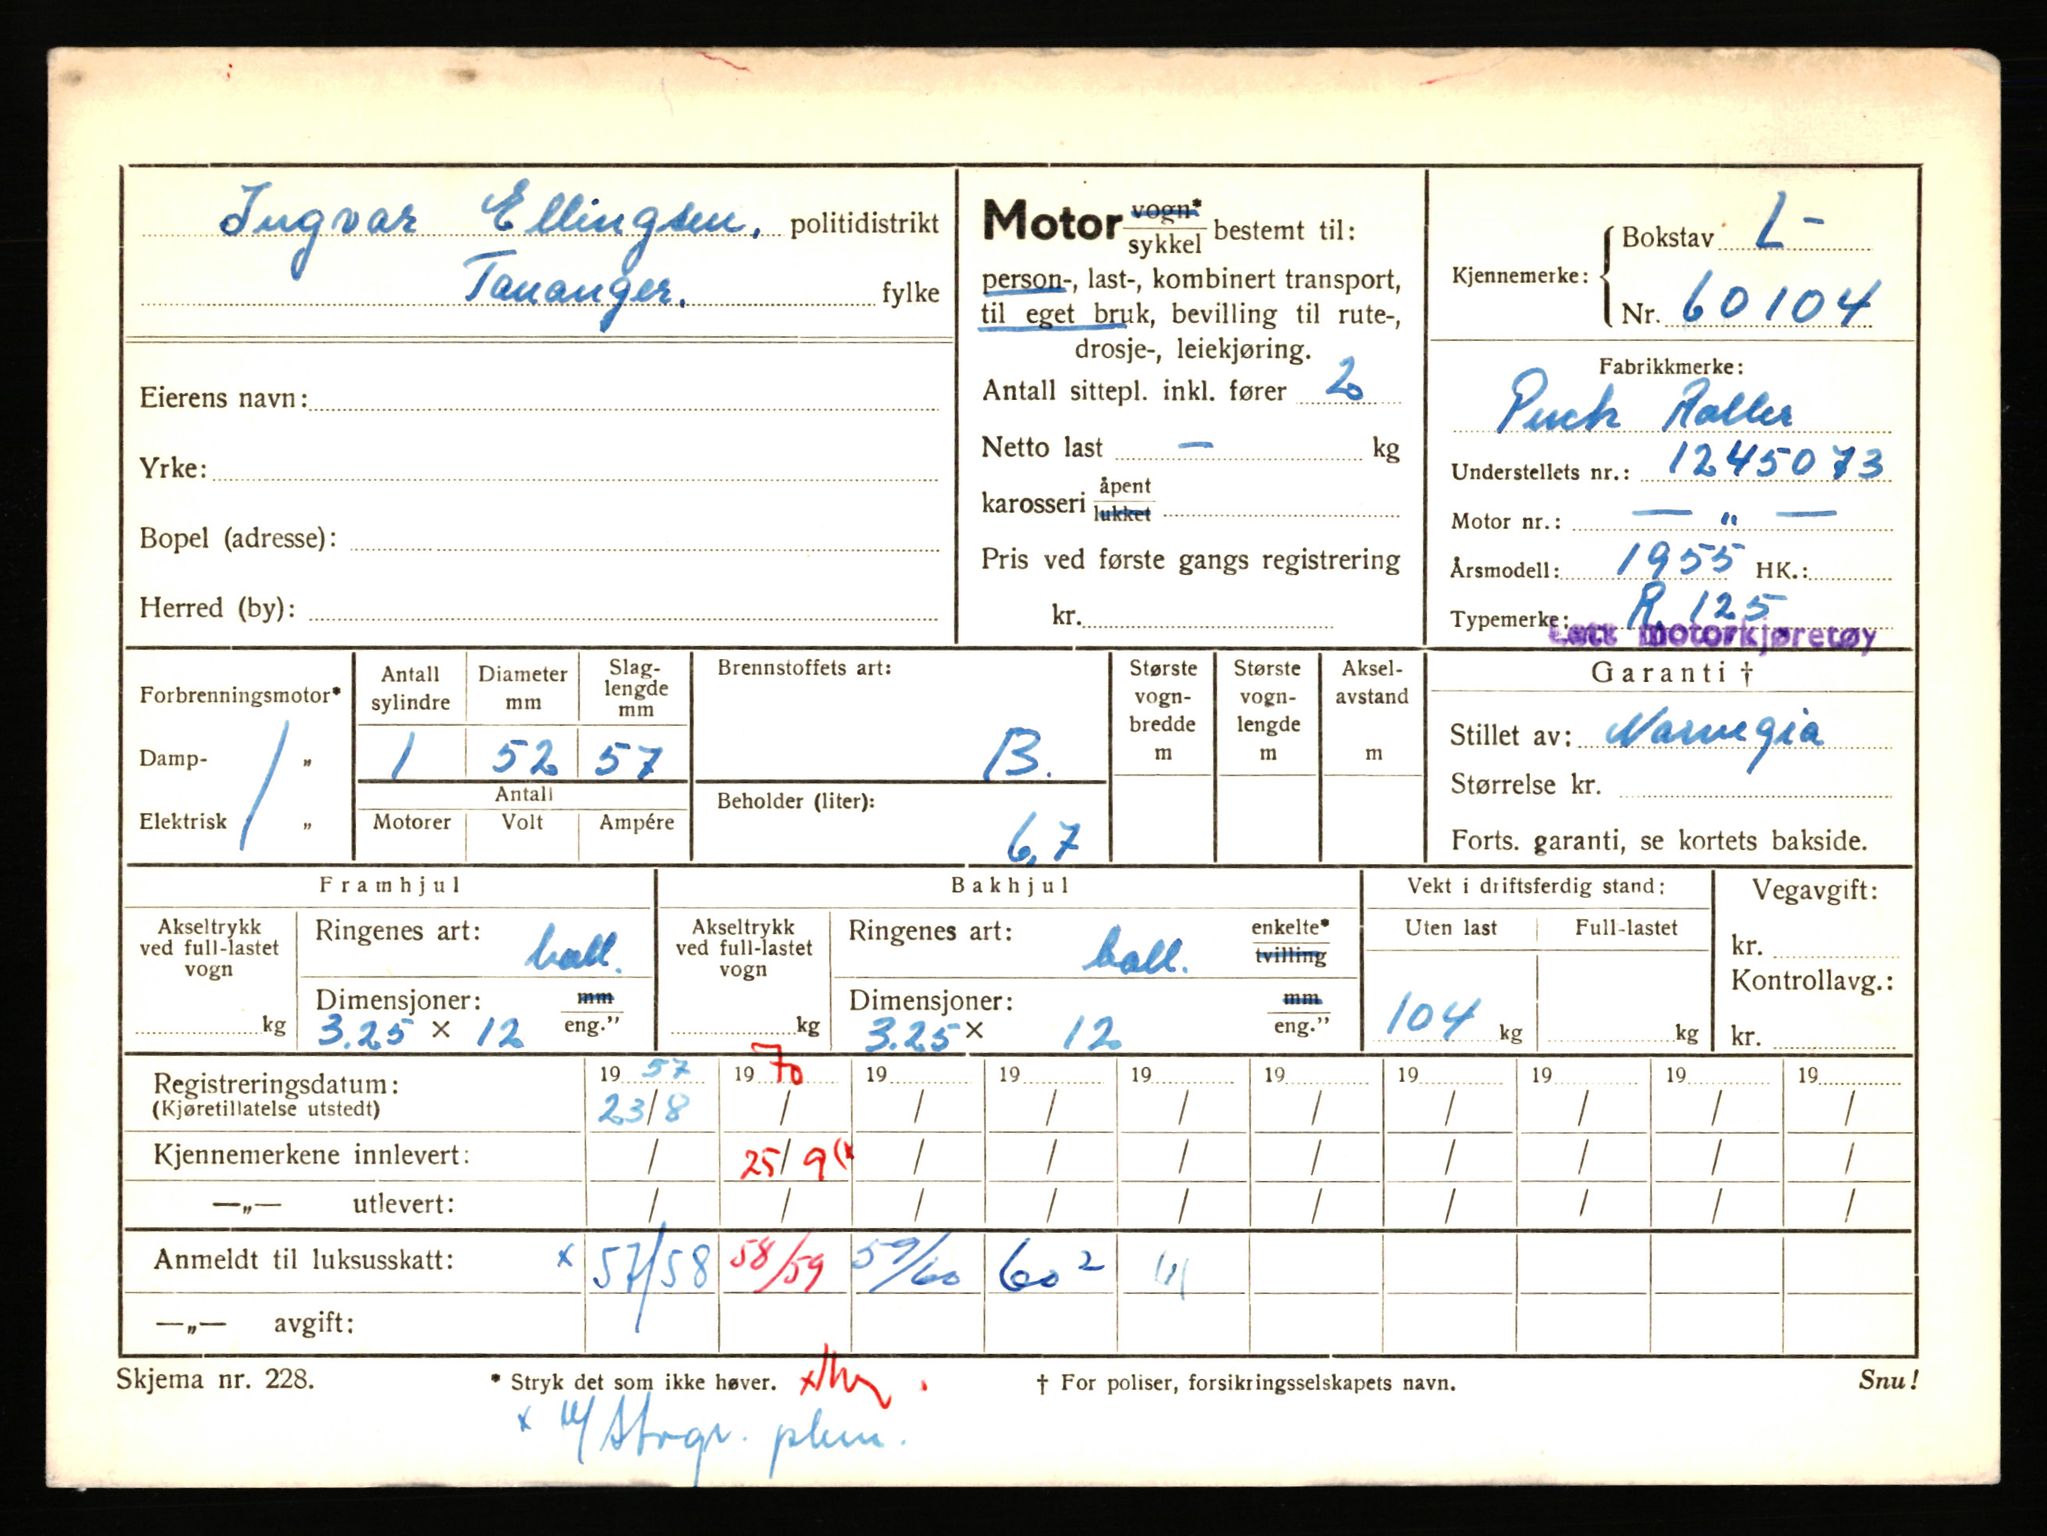 Ingvar Ellingsen. politidistrikt
Tananger. fylke
Eierens navn:
Yrke:
Bopel (adresse):
Herred (by):
Motor vogn* sykkel bestemt til:
person-, last-, kombinert transport,
til eget bruk, bevilling til rute-,
drosje-, leiekjøring.
Antall sittepl. inkl. fører 2
Netto last — kg
karosseri åpent lukket
Pris ved første gangs registrering
kr.
Kjennemerke: Bokstav L-
Nr. 60104
Fabrikkmerke:
Puch Roller
Understellets nr.: 1245073
Motor nr.: — „ —
Årsmodell: 1955 HK.:
Typemerke: R. 125
Lett motorkjøretøy
Forbrenningsmotor*
Damp- „
Elektrisk „
Antall sylindre 1
Diameter mm 52
Slag-lengde mm 57
Antall
Motorer Volt Ampére
Brennstoffets art: B.
Beholder (liter): 6,7
Største vogn-bredde m
Største vogn-lengde m
Aksel-avstand m
Garanti †
Stillet av: Norvegia
Størrelse kr.
Forts. garanti, se kortets bakside.
Framhjul
Akseltrykk ved full-lastet vogn kg
Ringenes art: ball.
Dimensjoner: mm eng.”
3.25 × 12
Bakhjul
Akseltrykk ved full-lastet vogn kg
Ringenes art: ball. enkelte* tvilling
Dimensjoner: mm eng.”
3.25 × 12
Vekt i driftsferdig stand:
Uten last Full-lastet
104 kg kg
Vegavgift:
kr.
Kontrollavg.:
kr.
Registreringsdatum: 19 57 19 70 19 19 19 19 19 19 19 19
(Kjøretillatelse utstedt) 23/8 / / / / / / / / /
Kjennemerkene innlevert: / 25/9 (x / / / / / / / /
—„— utlevert: / / / / / / / / / /
Anmeldt til luksusskatt: x 57/58 58/59 59/60 60²
—„— avgift:
Skjema nr. 228. * Stryk det som ikke høver. † For poliser, forsikringsselskapets navn. Snu!